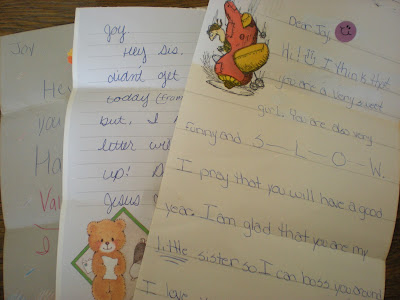 Joy
He
you
Ha
Va
I
Joy,
Hey Sis.
didn't get
today (from
but, I
letter wi
up! D
Jesus
Dear Joy,
Hi! I think that
you are a very sweet
girl. You are also very
funny and S-L-O-W.
I pray that you will have a good
year. I am glad that you are my
little sister so I can boss you around
I love